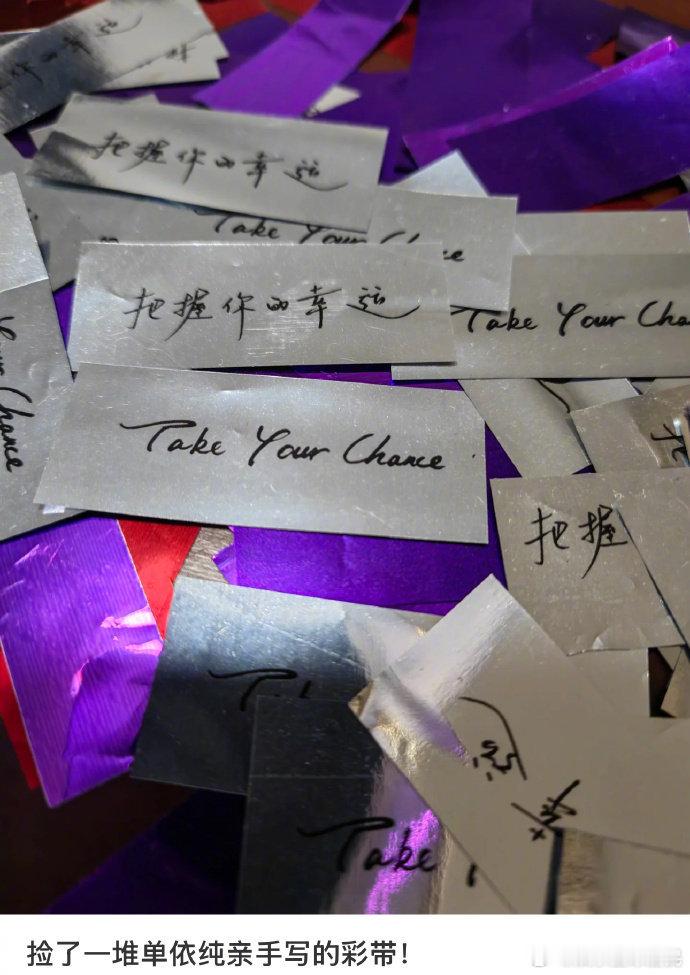 把握你的幸运
Take Your Chance
把握你的幸运
Take Your
Your Chance
Take Your Chance
把握
Take
捡了一堆单依纯亲手写的彩带！